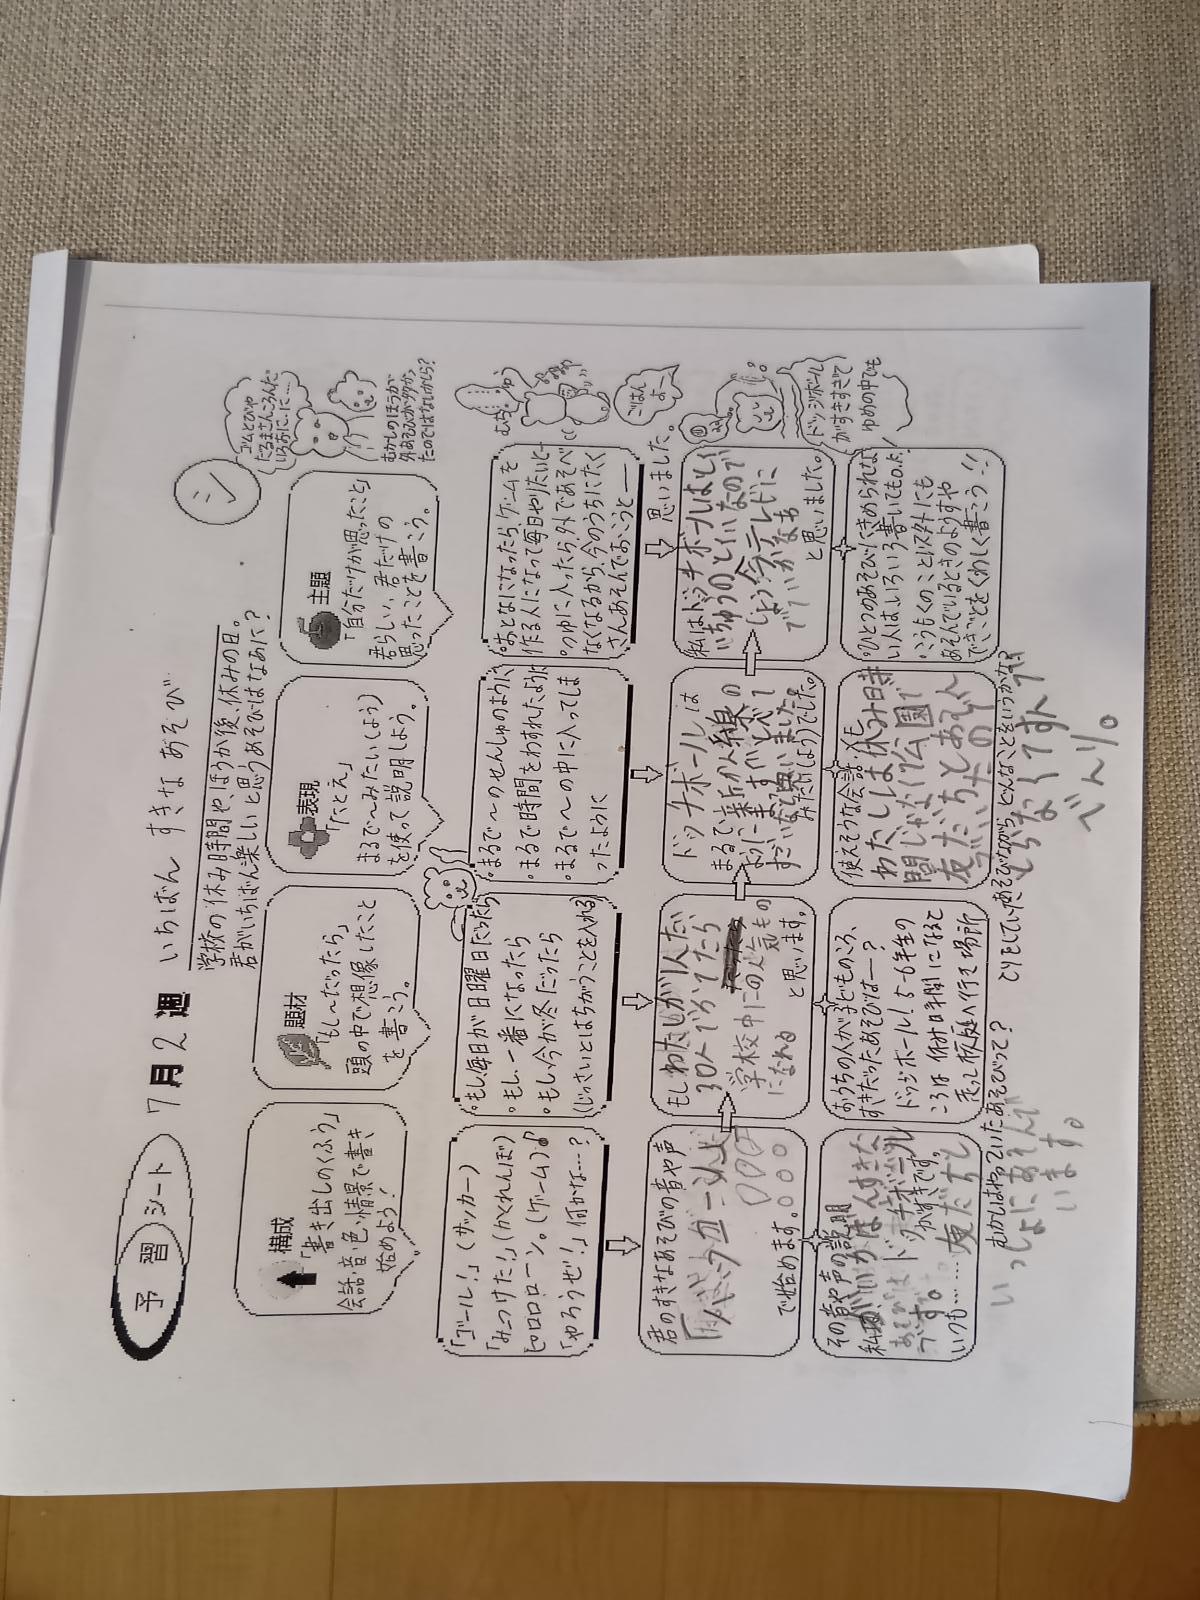 予習シート
7月2週
いちばん すきな あそび
シ
学校の休み時間や、ほうか後、休みの日。
君がいちばん楽しいと思うあそびはなあに?
構成
「書き出しのくふう」
会話・音・色・情景で書き
始めよう!
題材
「もし〜だったら」
頭の中で想像したこと
を書こう。
表現
「たとえ」
まるで〜みたい(しよう)
を使って説明しよう。
主題
「自分だけが思ったこと」
君らしい、君だけの
思ったことを書こう。
ゴムとびや
だるまさんころんだ
いろおに、に……
むかしのほうが
外あそびが多か、
たのではないかしら?
「ゴール!」(サッカー)
「みーつけた!」(かくれんぼ)
ピロロローン。(ゲーム)♪
「やろうぜ!」何かな……?
・もし、毎日が日曜日だったら
・もし、一番になったら
・もし、今が冬だったら
(じっさいとはちがうことを入れる)
・まるで〜のせんしゅのように
・まるで時間をわすれたように
・まるで〜の中に入ってしま
ったように
・おとなになったらゲームを
作る人になって毎日やりたいと―
・つゆに入ったら外であそべ
なくなるから、今のうちにたく
さんあそんでおこうと――
思いました。
ごはん
よー
君のすきなあそびの音や声
で始めます。
もしわたしが1人だ
30人で
学校中にの人気もの
になれる
と思います。
ドッチボールは
まるで、新かん線の
みたいしようでした。
私はドッチボールは
と思いました。
ドッジボール
がすきすぎて
ゆめの中でも
その音や声の説明
ドッチボール
がすきです。
いつも……友だちと
いっしょにあそんで
います。
おうちの人が子どものころ、
すきだったあそびはー?
ドッジボール!5〜6年生の
ころは休み時間になると
走って校庭へ行き場所
とりをしていた
むかしはやっていたあそびって?
使えそうな会話・メモ
わたしは休み時
間じゃなく公園で
友だちとあそん
あそびながら、どんなことをいうかな?
べんり。
・ひとつのあそびにきめられな
い人は、いろいろ書いてもO.K!
・こうもくのこと以外にも
あそんでいるときのようすや
できごとをくわしく書こう!!